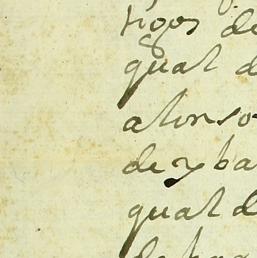 tigos de
qual d
alonso
de yba
qual d